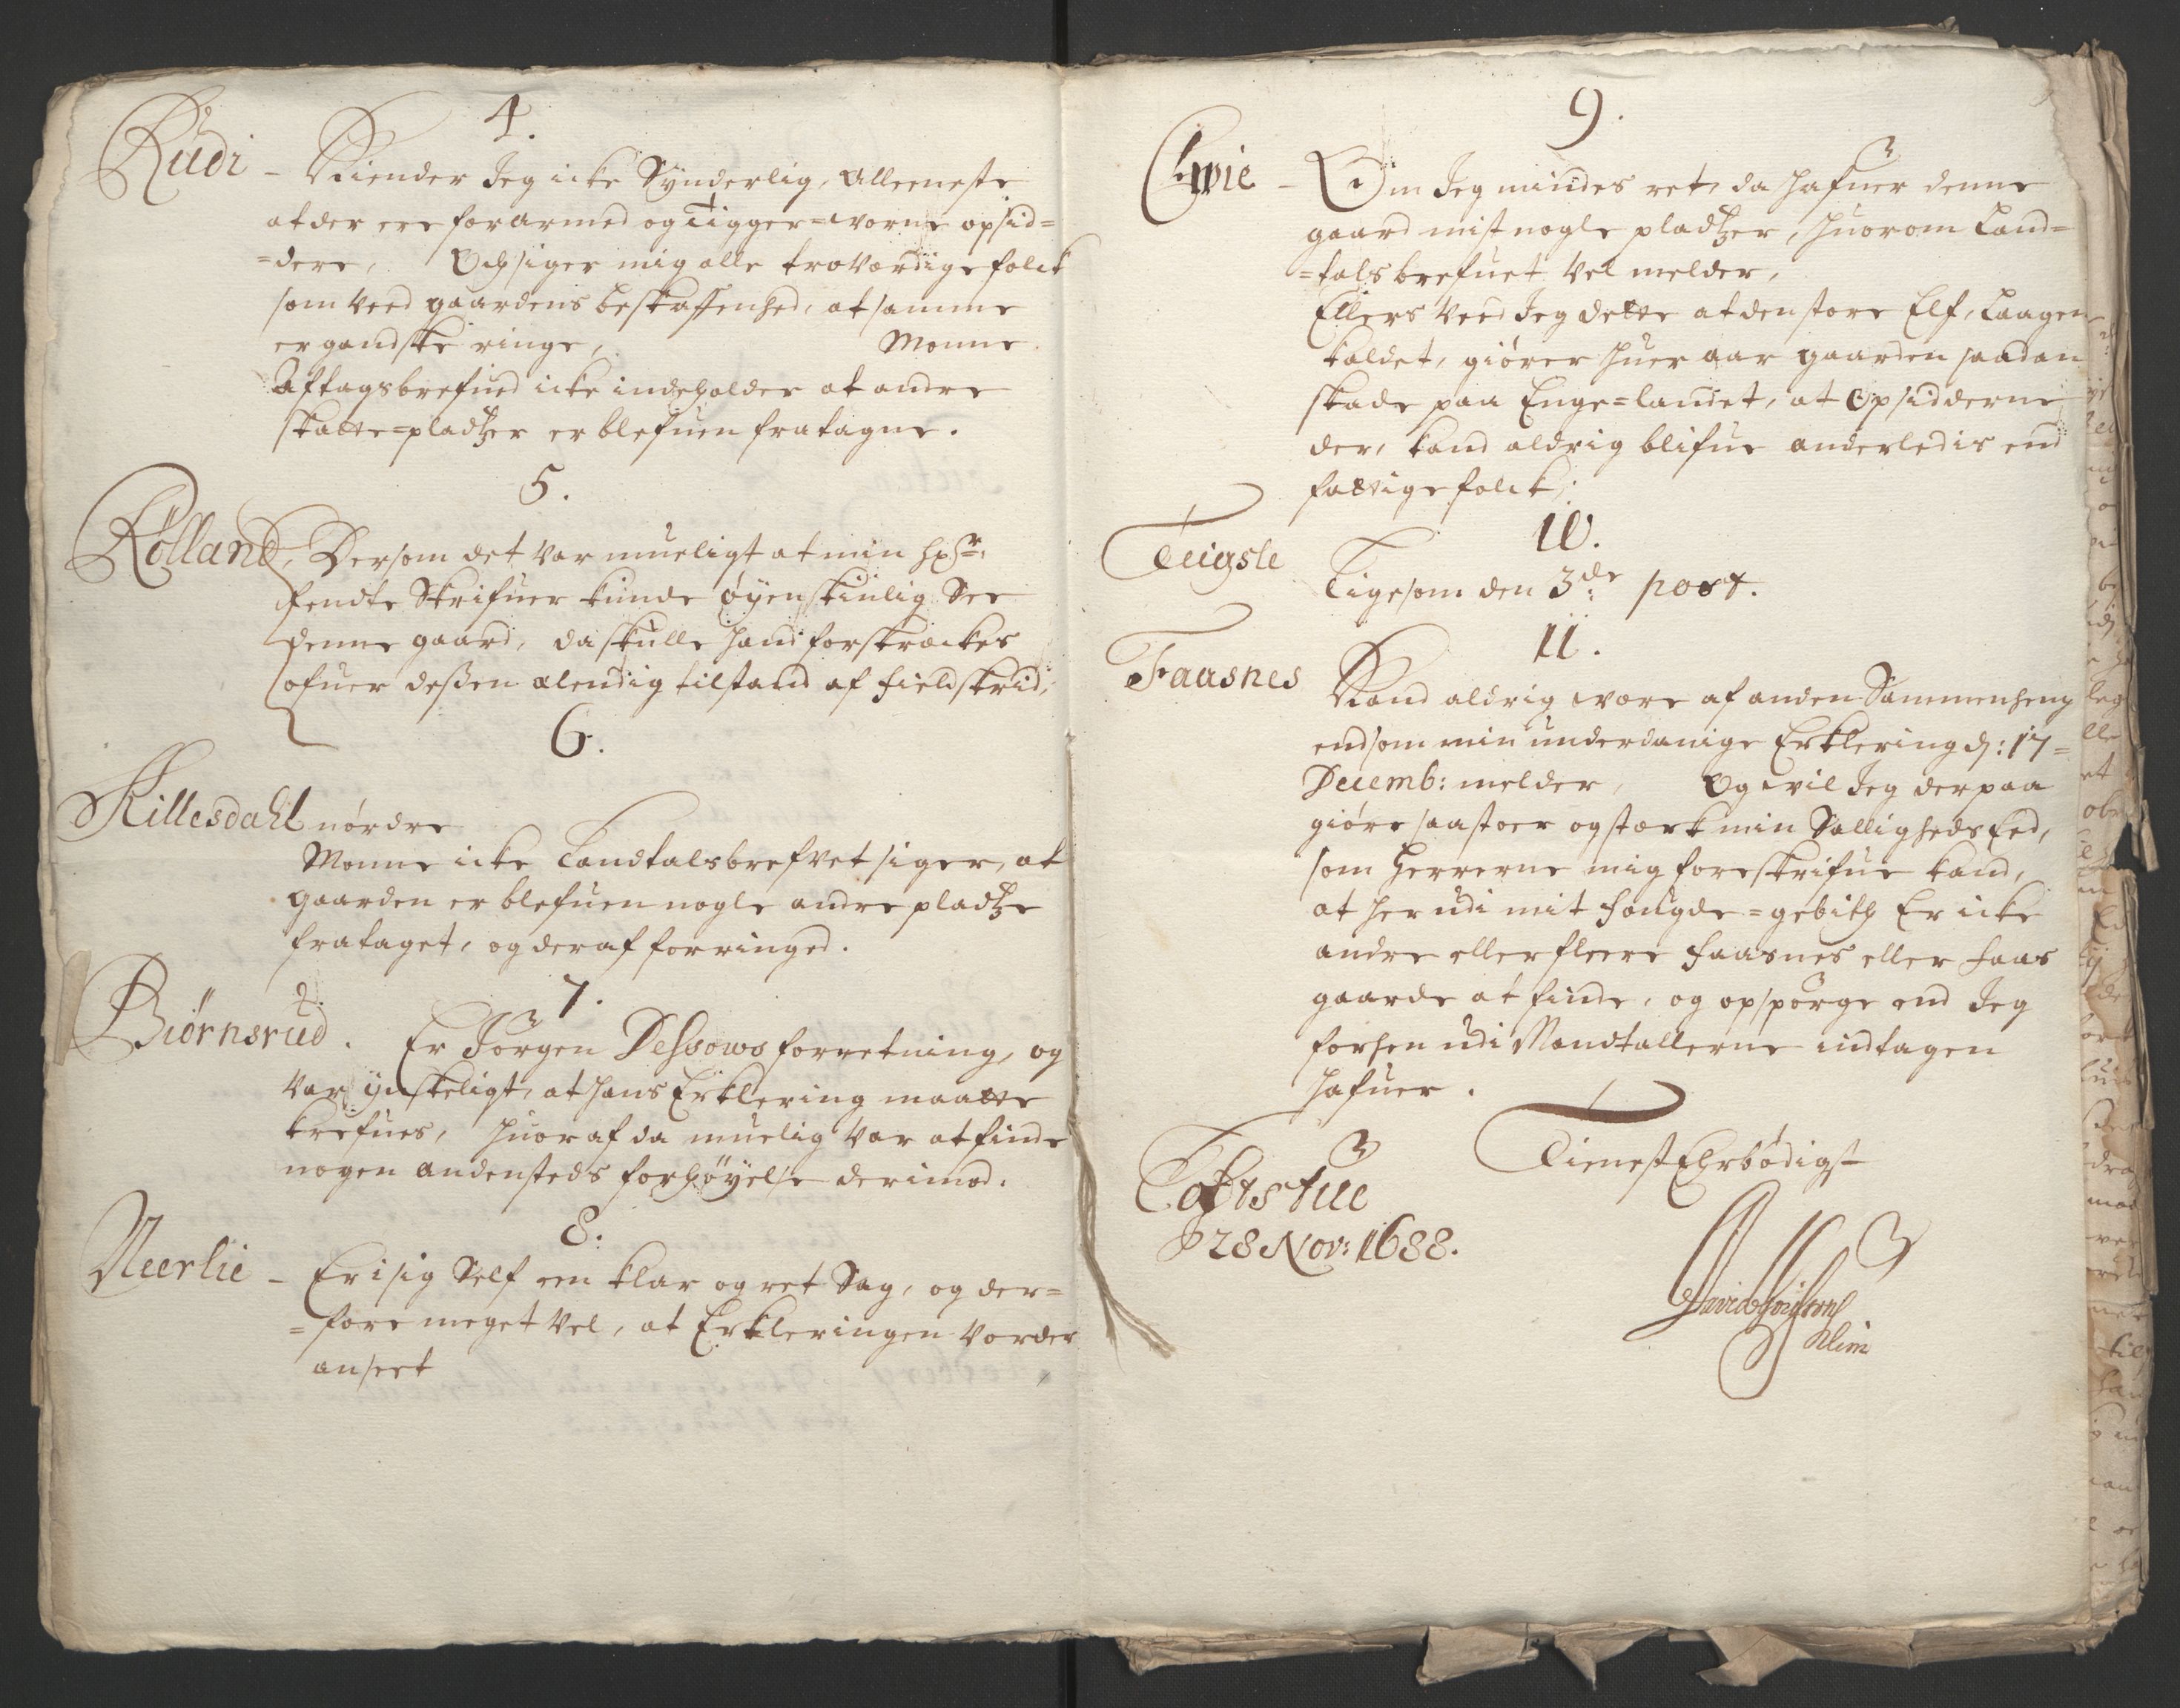 4.
Rudi – Kiender Jeg icke Synderlig, Alleeneste
at der ere forarmed og Tigger=worne opsid=
=dere, Och siger mig alle troverdige folck
som veed gaardens beskaffenhed, at samme
er gandske ringe, Monne
Aftagsbrefued icke indeholder at andre
skatte=pladtzer er blefuen fratagne.
5.
Rölland, Dersom det var mueligt at min
fendte Skrifuer kunde øyenskinlig See
denne gaard, da skulle hand forskreckes
ofuer deßen elendig tilstand af fieldskrid,
6.
Killesdahl nørdre
Monne icke Landtalsbrefvet siger, at
gaarden er blefuen nogle andre pladtze
frataget, og deraf forringed.
7.
Biørnsrud. Er Jørgen Dessows forretning, og
var ynskeligt, at hans Erklering maatte
krefues, huoraf da muelig var at finde
nogen andensteds forhøyelse derimod.
8.
Neerlie – Er i sig Self een klar og ret Sag, og der=
=fore meget vel, at Erkleringen vorder
anseet
9.
Lwie – Om Jeg mindes ret, da hafuer denne
gaard mist nogle pladtzer, huorom Land=
=talsbrefuet vel melder,
Ellers veed Jeg dette at den store Elf, Laagen
kaldet, giører huer aar gaarden saadan
skade paa Enge=landet, at Opsidderne
der, kand aldrig blifue anderledis end
fattige folck;
10.
Teigsle Ligesom den 3de post.
11.
Faasnes Kand aldrig were af anden Sammenheng
end som min underdanige Erklering d: 17=
Decemb: melder, Og wil Jeg derpaa
giøre saa stoer og sterk min Salligheds Eed,
som Herrerne mig foreskrifue kand,
at her udi mit fougde=gebith Er icke
andre eller fleere Faasnes eller Faas
gaarde at finde, og opspørge end Jeg
forhen udi Mandtallerne indtagen
hafuer.
Toftstue
28 Nov: 1688.
Tienest Ehrbødigst